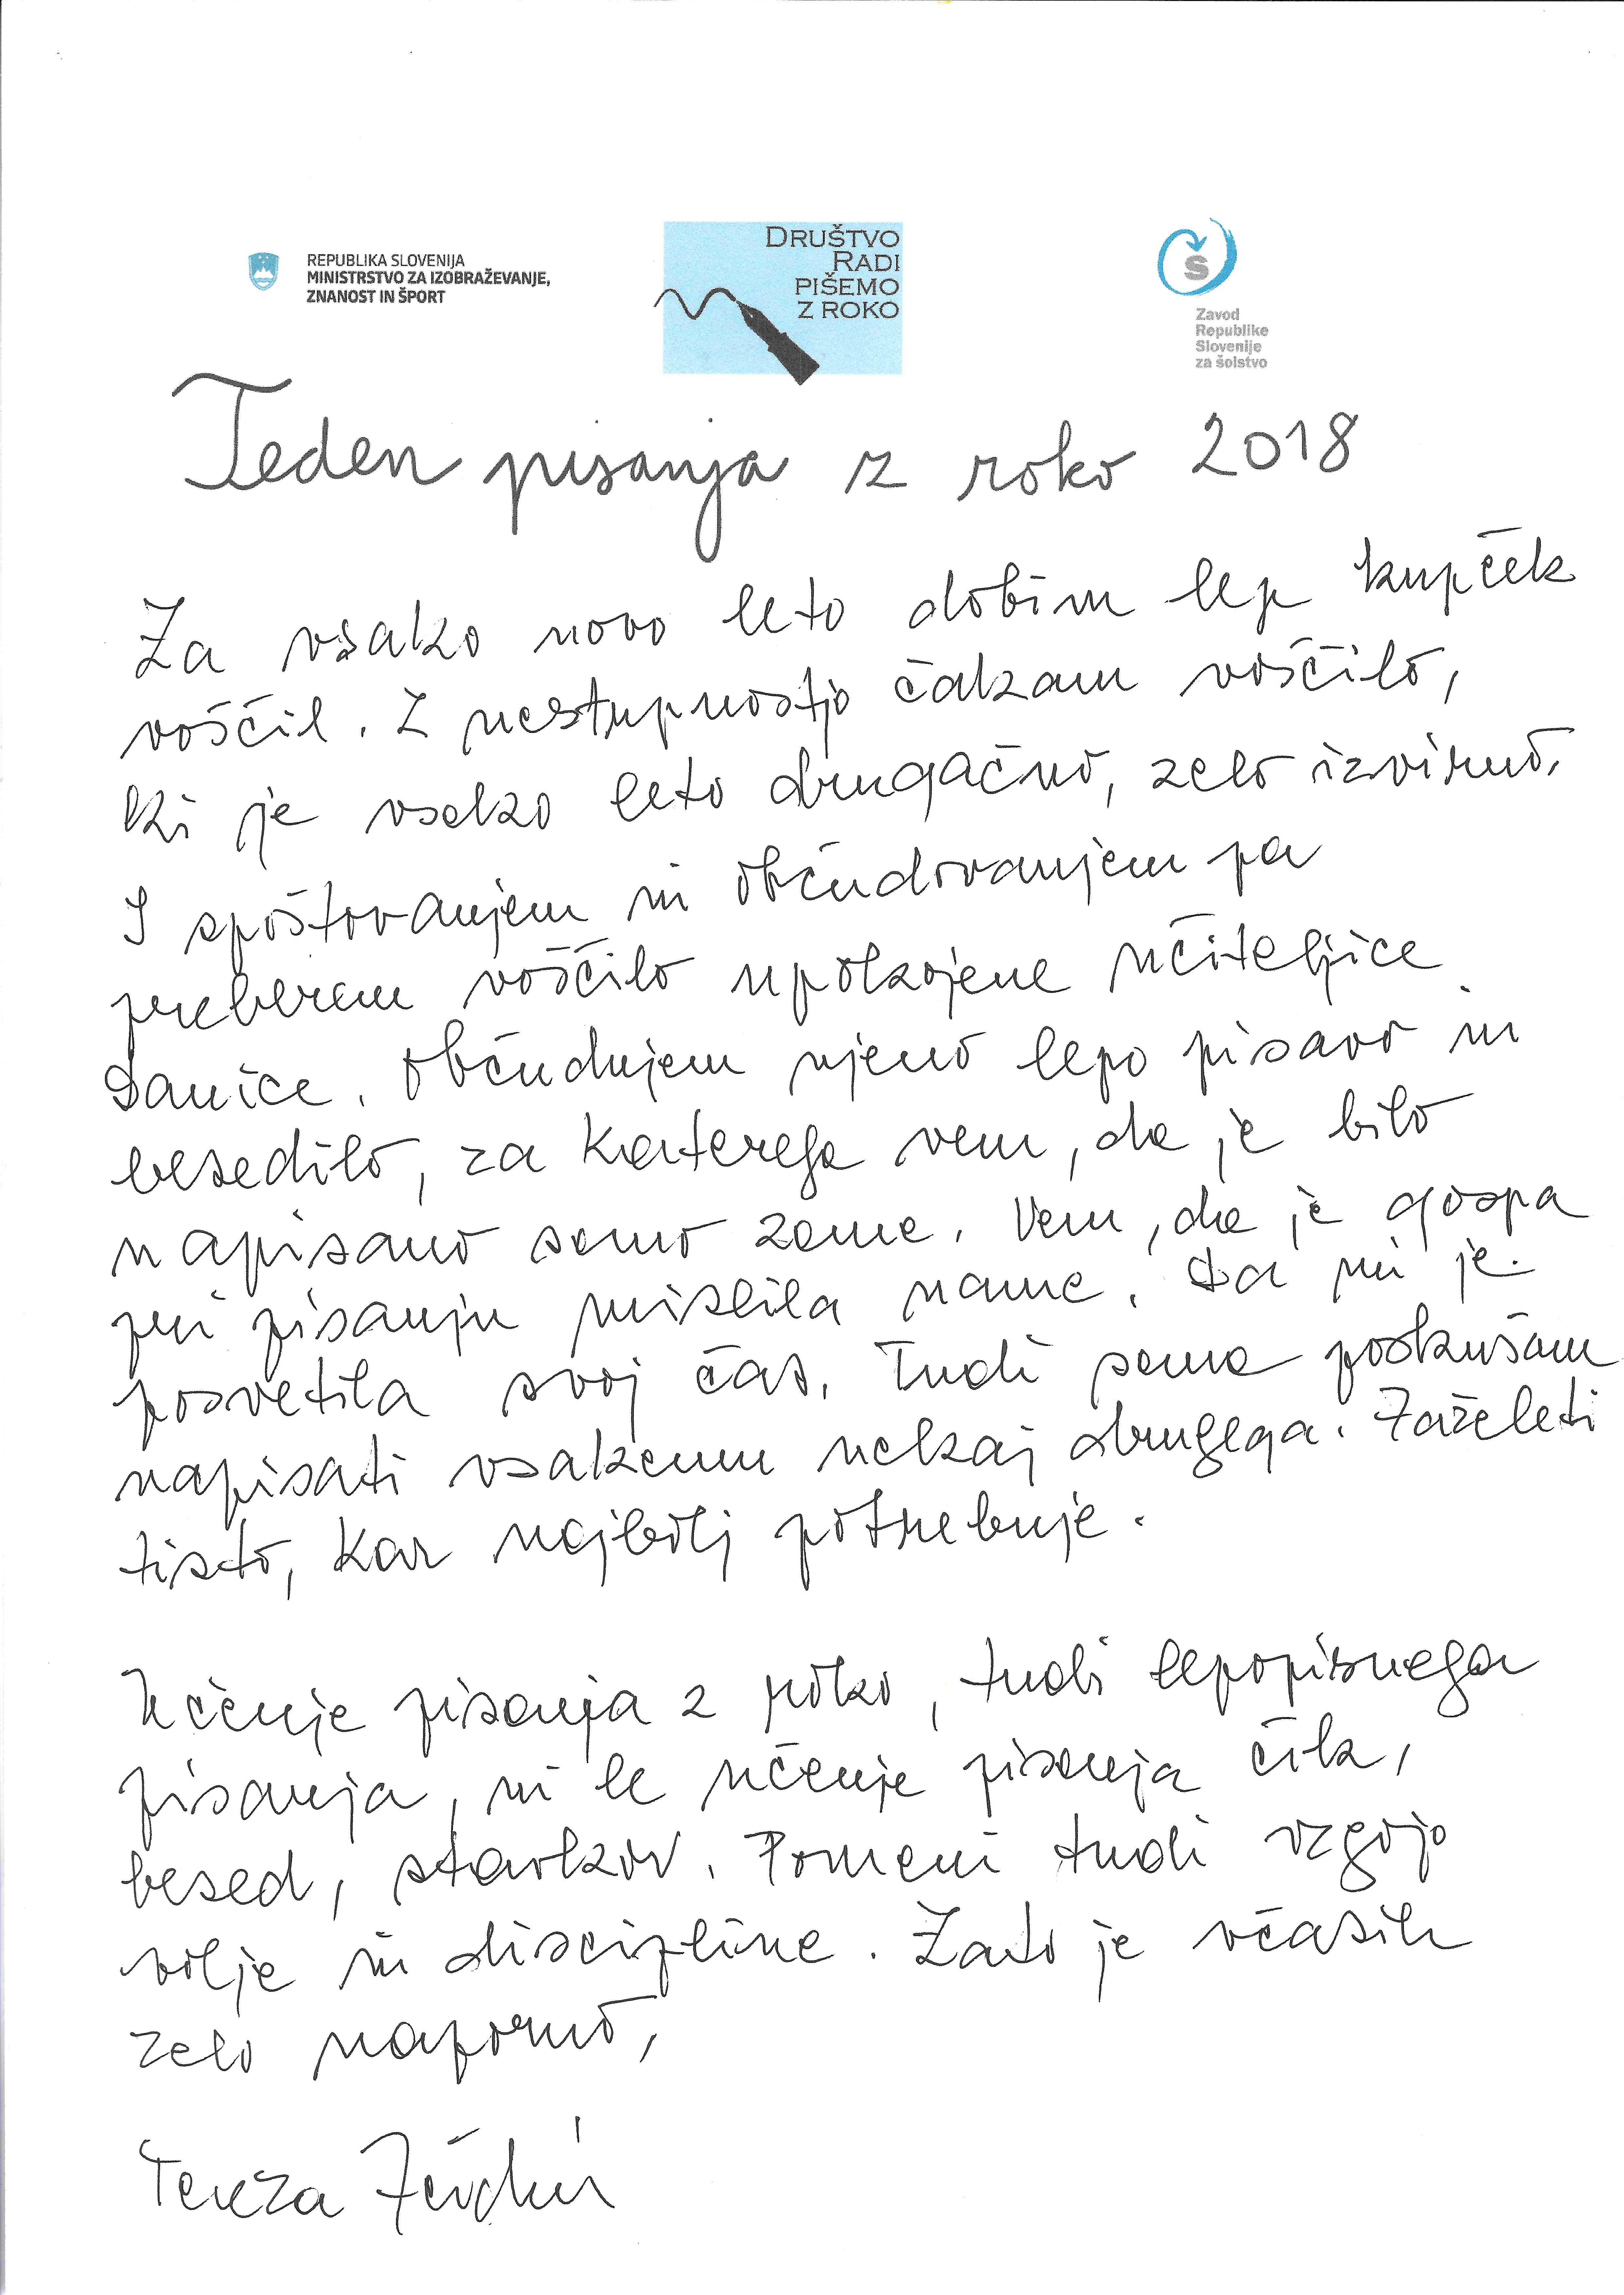 REPUBLIKA SLOVENIJA
MINISTRSTVO ZA IZOBRAŽEVANJE,
ZNANOST IN ŠPORT
DRUŠTVO
RADI
PIŠEMO
Z ROKO
Š
Zavod
Republike
Slovenije
za šolstvo
Teden pisanja z roko 2018
Za vsako novo leto dobim lep kupček
voščil. Z nestrpnostjo čakam voščilo,
ki je vsako leto drugačno, zelo izvirno.
S spoštovanjem in občudovanjem pa
preberem voščilo upokojene učiteljice
Danice. Občudujem njeno lepo pisavo in
besedilo, za katerega vem, da je bilo
napisano samo zame. Vem, da je gospa
pri pisanju mislila name. Da mi je
posvetila svoj čas. Tudi sama poskušam
napisati vsakemu nekaj drugega. Zaželeti
tisto, kar najbolj potrebuje.
Učenje pisanja z roko, tudi lepopisnega
pisanja, ni le učenje pisanja črk,
besed, stavkov. Pomeni tudi vzgojo
volje in discipline. Zato je včasih
zelo naporno,
Tereza